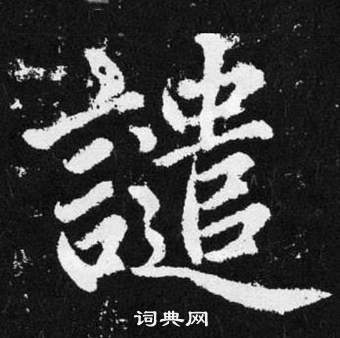 譴
词典网